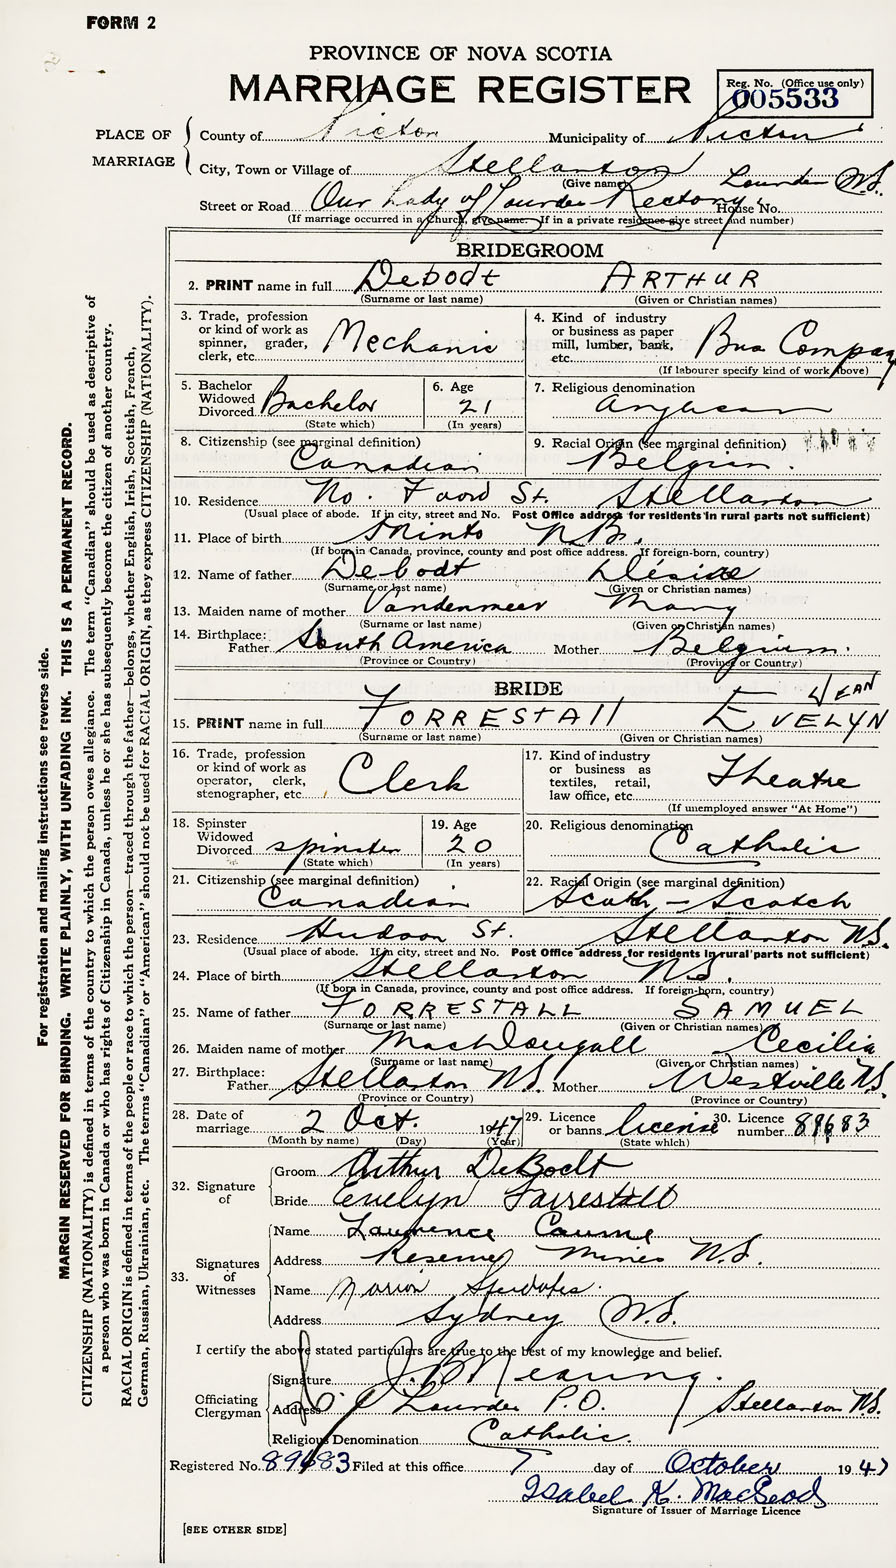 FORM 2
PROVINCE OF NOVA SCOTIA
MARRIAGE REGISTER
Reg. No. (Office use only)
005533
PLACE OF MARRIAGE
County of Pictou Municipality of Pictou
City, Town or Village of Stellarton
(Give name) Lourdes N.S.
Street or Road Our Lady of Lourdes Rectory House No.
(If marriage occurred in a church, give name. If in a private residence give street and number)
BRIDEGROOM
2. PRINT name in full Debodt ARTHUR
(Surname or last name) (Given or Christian names)
3. Trade, profession or kind of work as spinner, grader, clerk, etc. Mechanic
4. Kind of industry or business as paper mill, lumber, bank, etc. Bus Company
(If labourer specify kind of work above)
5. Bachelor Widowed Divorced Bachelor
(State which)
6. Age 21
(In years)
7. Religious denomination Anglican
8. Citizenship (see marginal definition) Canadian
9. Racial Origin (see marginal definition) Belgian.
10. Residence No. Foord St. Stellarton
(Usual place of abode. If in city, street and No. Post Office address for residents in rural parts not sufficient)
11. Place of birth Minto N.B.
(If born in Canada, province, county and post office address. If foreign-born, country)
12. Name of father Debodt Désiré
(Surname or last name) (Given or Christian names)
13. Maiden name of mother Vandenmeer Mary
(Surname or last name) (Given or Christian names)
14. Birthplace: Father South America Mother Belgium.
(Province or Country) (Province or Country)
BRIDE
JEAN
15. PRINT name in full FORRESTAll EVELYN
(Surname or last name) (Given or Christian names)
16. Trade, profession or kind of work as operator, clerk, stenographer, etc. Clerk
17. Kind of industry or business as textiles, retail, law office, etc. Theatre
(If unemployed answer "At Home")
18. Spinster Widowed Divorced spinster
(State which)
19. Age 20
(In years)
20. Religious denomination Catholic
21. Citizenship (see marginal definition) Canadian
22. Racial Origin (see marginal definition) Scotch - Scotch
23. Residence Hudson St. Stellarton N.S.
(Usual place of abode. If in city, street and No. Post Office address for residents in rural parts not sufficient)
24. Place of birth Stellarton N.S.
(If born in Canada, province, county and post office address. If foreign-born, country)
25. Name of father FORRESTALL SAMUEL
(Surname or last name) (Given or Christian names)
26. Maiden name of mother MacDougall Cecilia
(Surname or last name) (Given or Christian names)
27. Birthplace: Father Stellarton N.S. Mother Westville N.S.
(Province or Country) (Province or Country)
28. Date of marriage 2 Oct. 1947
(Month by name) (Day) (Year)
29. Licence or banns license
(State which)
30. Licence number 89683
32. Signature of
Groom Arthur DeBodt
Bride Evelyn Forrestall
33. Signatures of Witnesses
Name Laurence
Address Reserve Mines N.S.
Name Marion
Address Sydney N.S.
I certify the above stated particulars are true to the best of my knowledge and belief.
Officiating Clergyman
Signature
Address Lourdes P.O. Stellarton N.S.
Religious Denomination Catholic.
Registered No. 89683 Filed at this office 7 day of October 1947
Isabel K. MacLeod
Signature of Issuer of Marriage Licence
[SEE OTHER SIDE]
For registration and mailing instructions see reverse side.
MARGIN RESERVED FOR BINDING. WRITE PLAINLY, WITH UNFADING INK. THIS IS A PERMANENT RECORD.
CITIZENSHIP (NATIONALITY) is defined in terms of the country to which the person owes allegiance. The term "Canadian" should be used as descriptive of
a person who was born in Canada or who has rights of Citizenship in Canada, unless he or she has subsequently become the citizen of another country.
RACIAL ORIGIN is defined in terms of the people or race to which the person—traced through the father—belongs, whether English, Irish, Scottish, French,
German, Russian, Ukrainian, etc. The terms "Canadian" or "American" should not be used for RACIAL ORIGIN, as they express CITIZENSHIP (NATIONALITY).